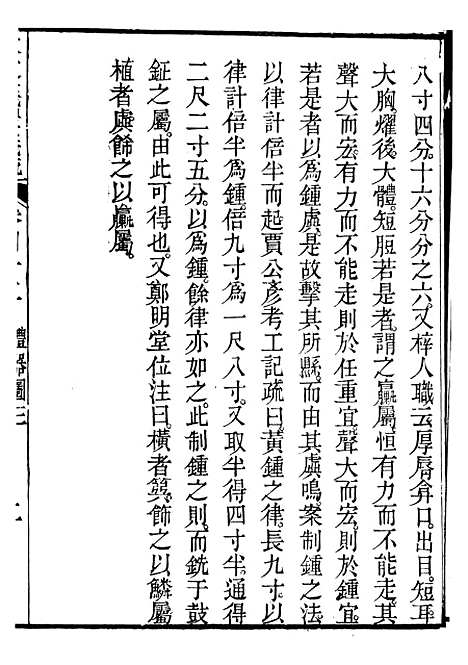 八寸四分。十六分分之六。又梓人職云厚脣弇口。出目。短耳。
大胸。燿後。大體。短脰。若是者謂之臝屬。恒有力而不能走。其
聲大而宏。有力而不能走則於任重宜。聲大而宏。則於鍾宜。
若是者以爲鍾虡。是故擊其所縣。而由其虡鳴。案制鍾之法。
以律計倍半而起賈公彥考工記疏曰。黃鍾之律。長九寸。以
律計倍半爲鍾。倍九寸爲一尺八寸。又取半得四寸半。通得
二尺二寸五分。以爲鍾。餘律亦如之。此制鍾之則。而銑于鼓
鉦之屬。由此可得也。又鄭明堂位注曰。橫者筍。飾之以鱗屬
植者虡飾之以臝屬。
禮器圖三